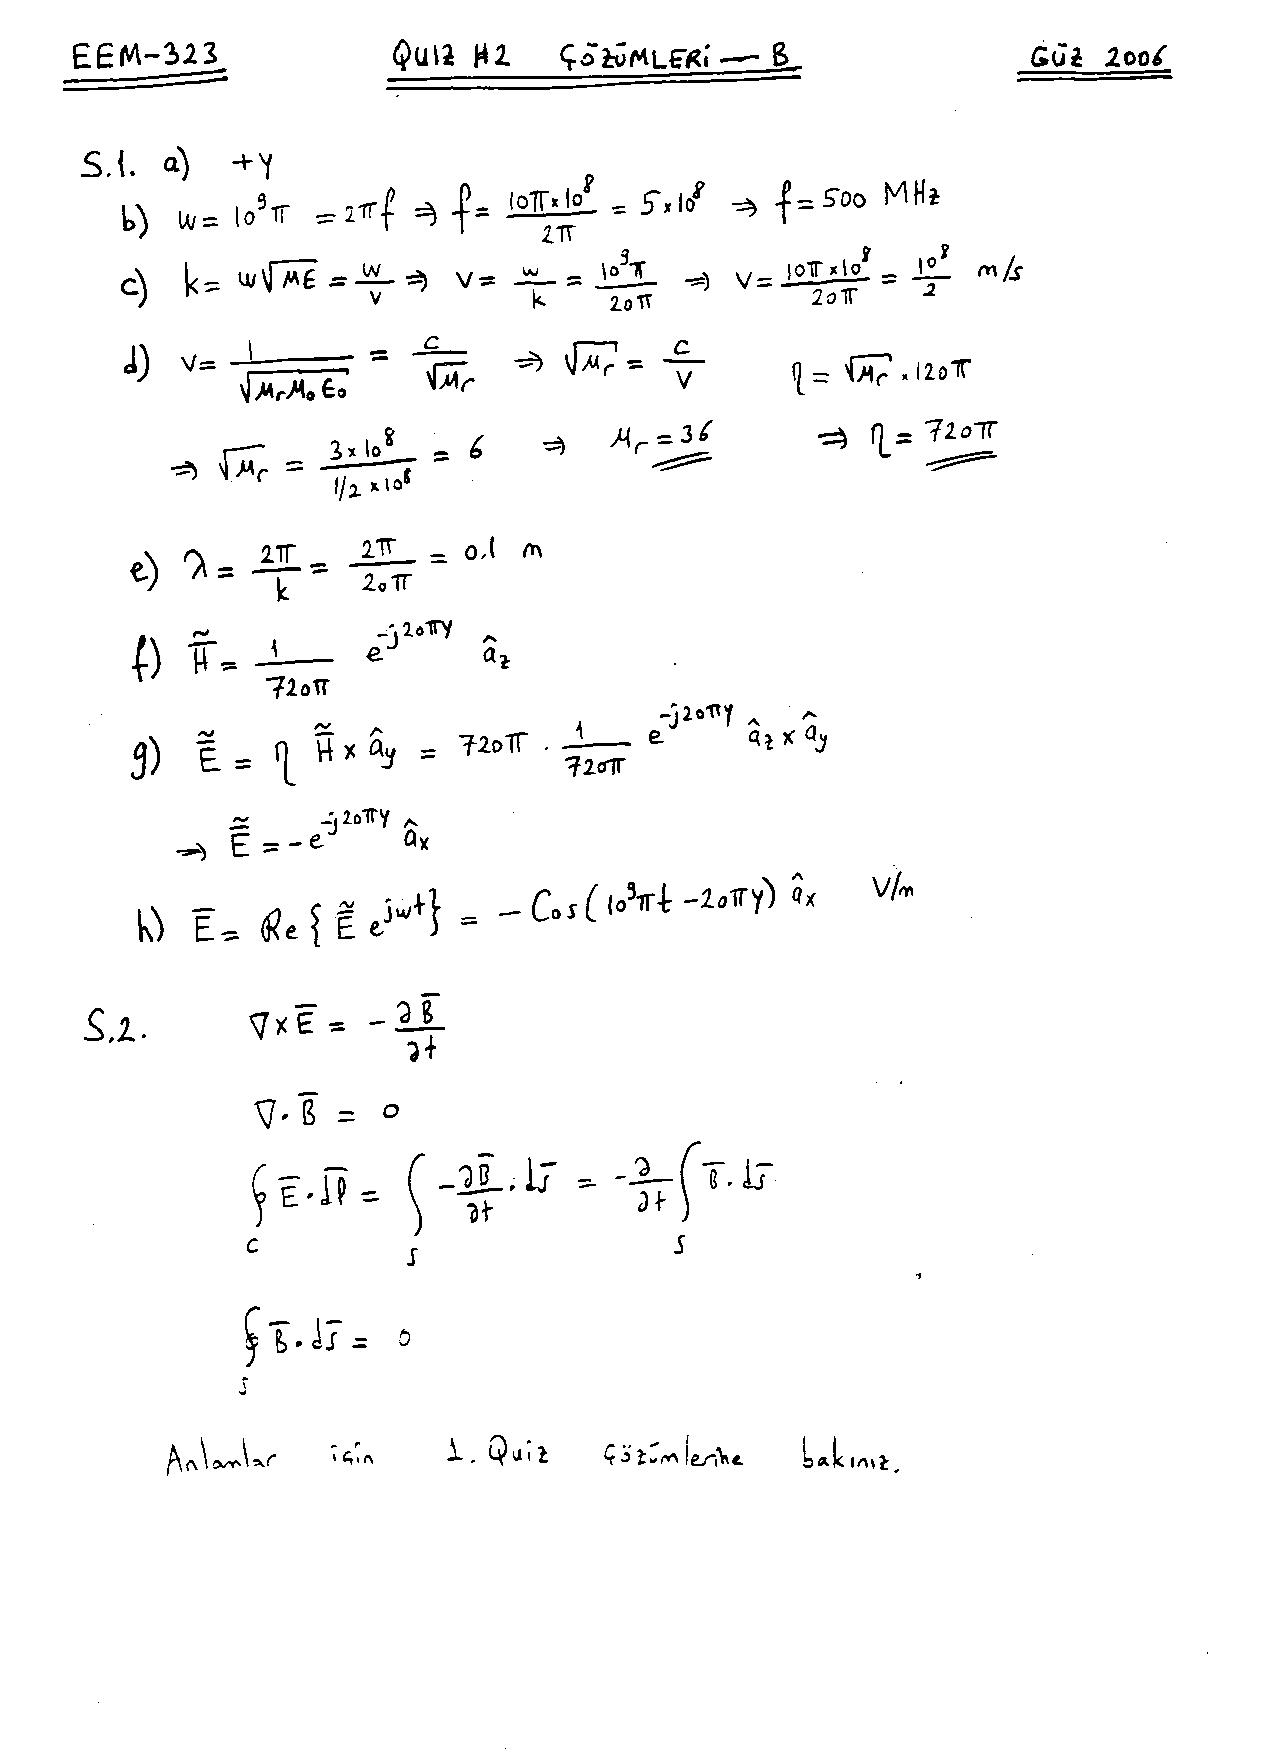 EEM-323 QUIZ #2 ÇÖZÜMLERİ — B GÜZ 2006
S.1. a) +y
b) w = 10⁹π = 2πf ⇒ f = 10π×10⁸ / 2π = 5×10⁸ ⇒ f = 500 MHz
c) k = w√με = w/v ⇒ v = w/k = 10⁹π / 20π ⇒ v = 10π×10⁸ / 20π = 10⁸/2 m/s
d) v = 1/√(μr μ₀ ε₀) = c/√μr ⇒ √μr = c/v η = √μr × 120π
⇒ √μr = 3×10⁸ / 1/2×10⁸ = 6 ⇒ μr = 36 ⇒ η = 720π
e) λ = 2π/k = 2π/20π = 0.1 m
f) H̃ = 1/720π e^(-j20πy) âz
g) Ẽ = η H̃ × ây = 720π · 1/720π e^(-j20πy) âz × ây
⇒ Ẽ = -e^(-j20πy) âx
h) Ē = Re{Ẽ e^(jwt)} = -Cos(10⁹πt - 20πy) âx V/m
S.2. ∇×Ē = -∂B̄/∂t
∇·B̄ = 0
∮_C Ē·dl̄ = ∫_S -∂B̄/∂t · ds̄ = -∂/∂t ∫_S B̄·ds̄
∮_S B̄·ds̄ = 0
Anlamlar için 1. Quiz çözümlerine bakınız.